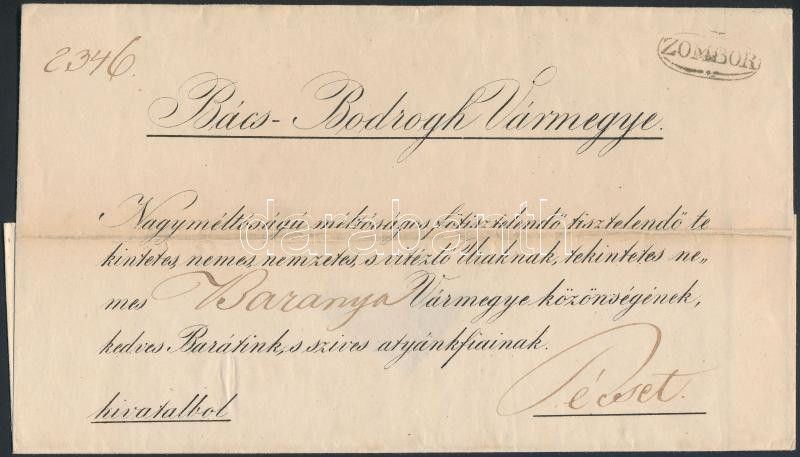 2346.
ZOMBOR
Bács-Bodrogh Vármegye.
Nagyméltóságú méltóságos, főtisztelendő tisztelendő te
kintetes, nemes, nemzetes, s vitézlő Uraknak, tekintetes ne„
mes Baranya Vármegye közönségének,
kedves Barátink, s szives atyánkfiainak.
hivatalbol
Pécset.
darabanth.com